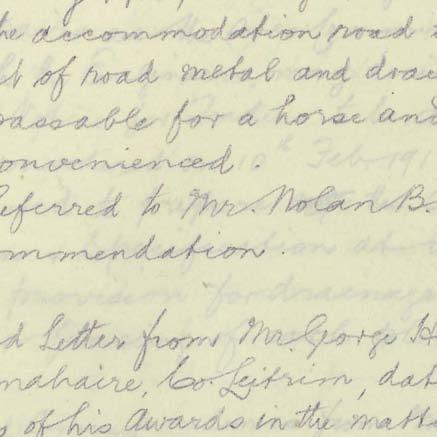 the accommodation road
of road metal and
passable for a horse and
convenienced.
Referred to Mr. Nolan B.
ommendation.
d Letter from Mr. George H
mahaire, Co. Leitrim, dat
of his Awards in the matt